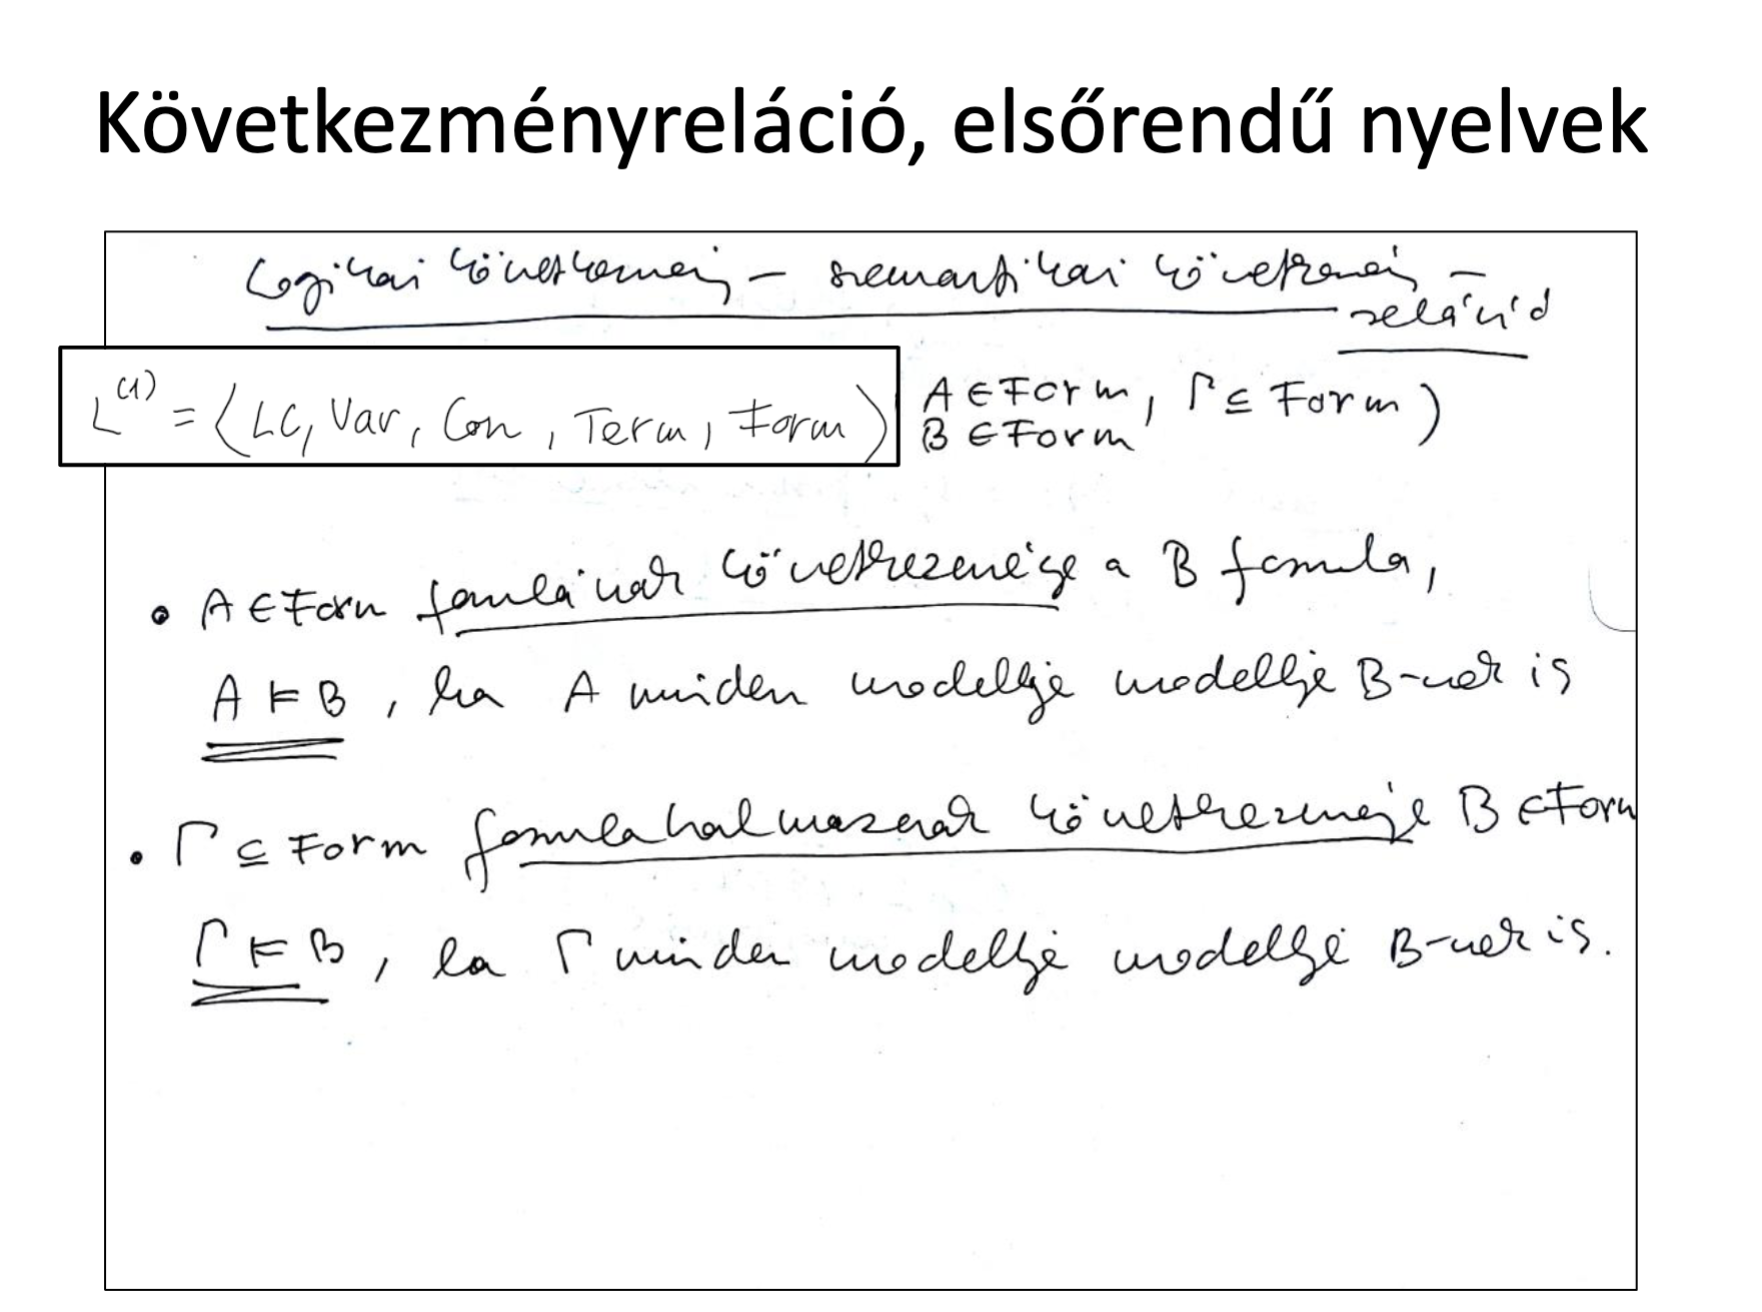 Következményreláció, elsőrendű nyelvek
Logikai következmény – szemantikai következmény –
reláció
L⁽¹⁾ = ⟨LC, Var, Con, Term, Form⟩
A ∈ Form, Γ ⊆ Form)
B ∈ Form
• A ∈ Form formulának következménye a B formula,
A ⊨ B, ha A minden modellje modellje B-nek is
• Γ ⊆ Form formulahalmaznak következménye B ∈ Form
Γ ⊨ B, ha Γ minden modellje modellje B-nek is.